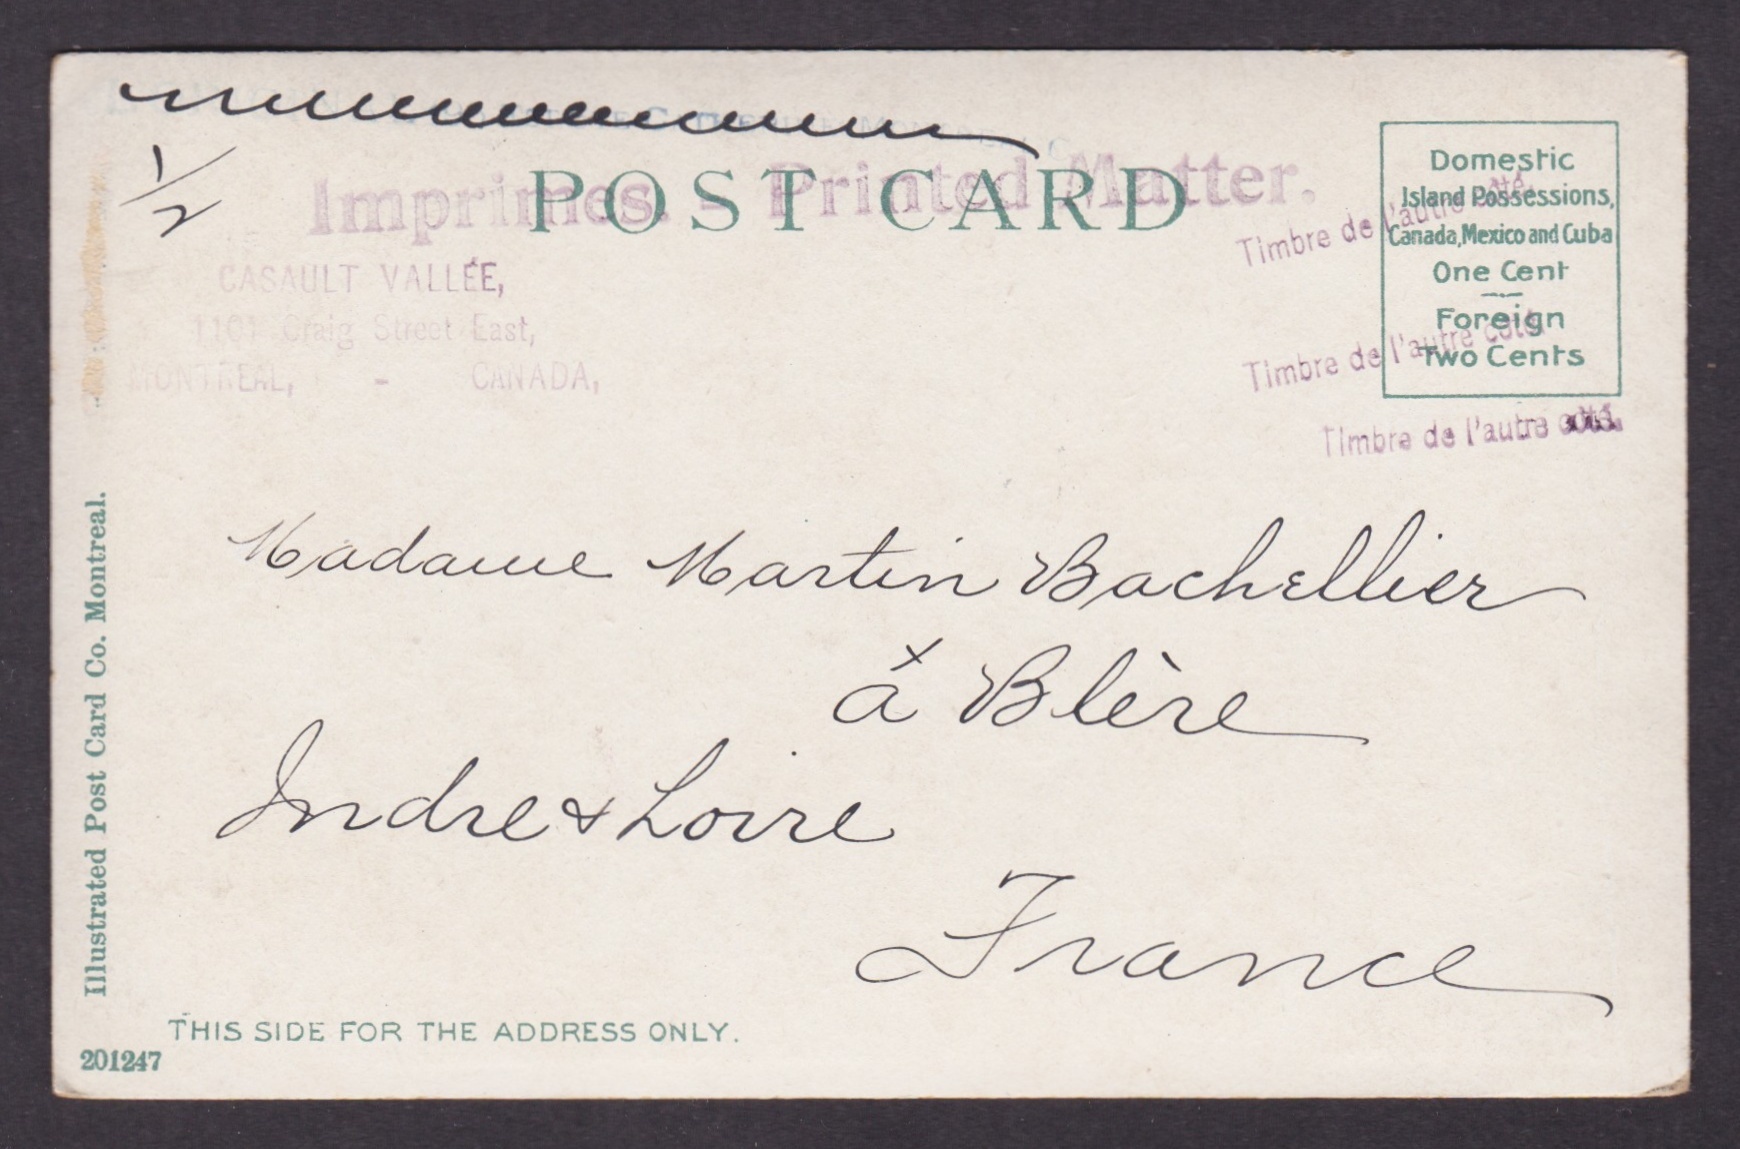 1/2
POST CARD
Imprimes. - Printed Matter.
CASAULT VALLÉE,
1101 Craig Street East,
MONTREAL, - CANADA,
Domestic
Island Possessions,
Canada, Mexico and Cuba
One Cent
Foreign
Two Cents
Timbre de l'autre coté.
Timbre de l'autre coté.
Timbre de l'autre coté.
Madame Martin Bachellier
à Blère
Indre & Loire
France
Illustrated Post Card Co. Montreal.
THIS SIDE FOR THE ADDRESS ONLY.
201247